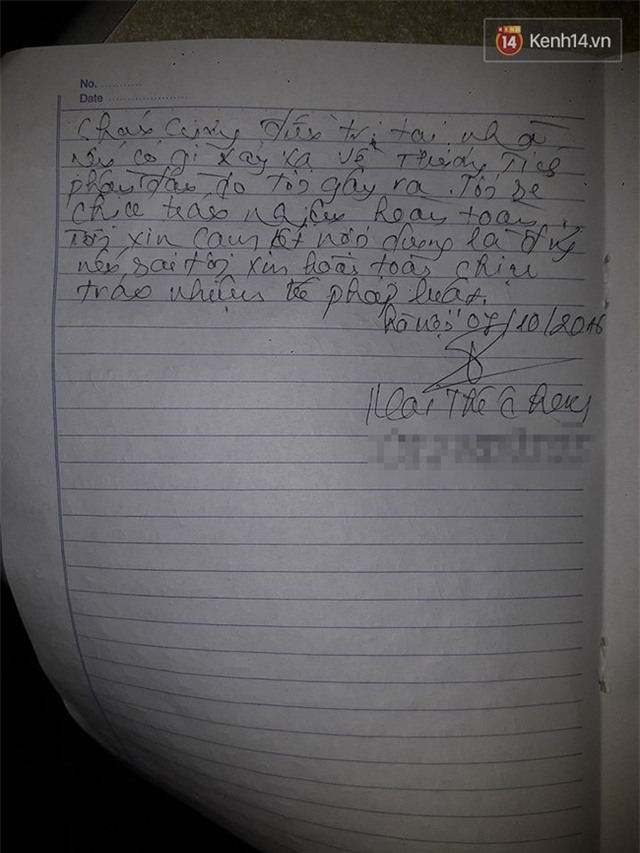 KENH 14 Kenh14.vn
No. ............
Date ......................
cháu Cũng điều trị tại nhà
nếu có gì xảy ra về thương tích
phần đầu do tôi gây ra. Tôi sẽ
chịu trách nhiệm hoàn toàn.
Tôi xin cam kết nội dung là đúng
nếu sai tôi xin hoàn toàn chịu
trách nhiệm trước pháp luật.
Hà nội 07/10/2016
Mai Thế